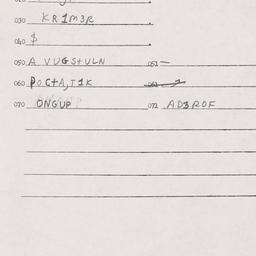 030 KR1M3R
040 $
050 A VUGS+ULN 051 —
060 POC+A,T1K
070 ONGUP 071 AD3ROF